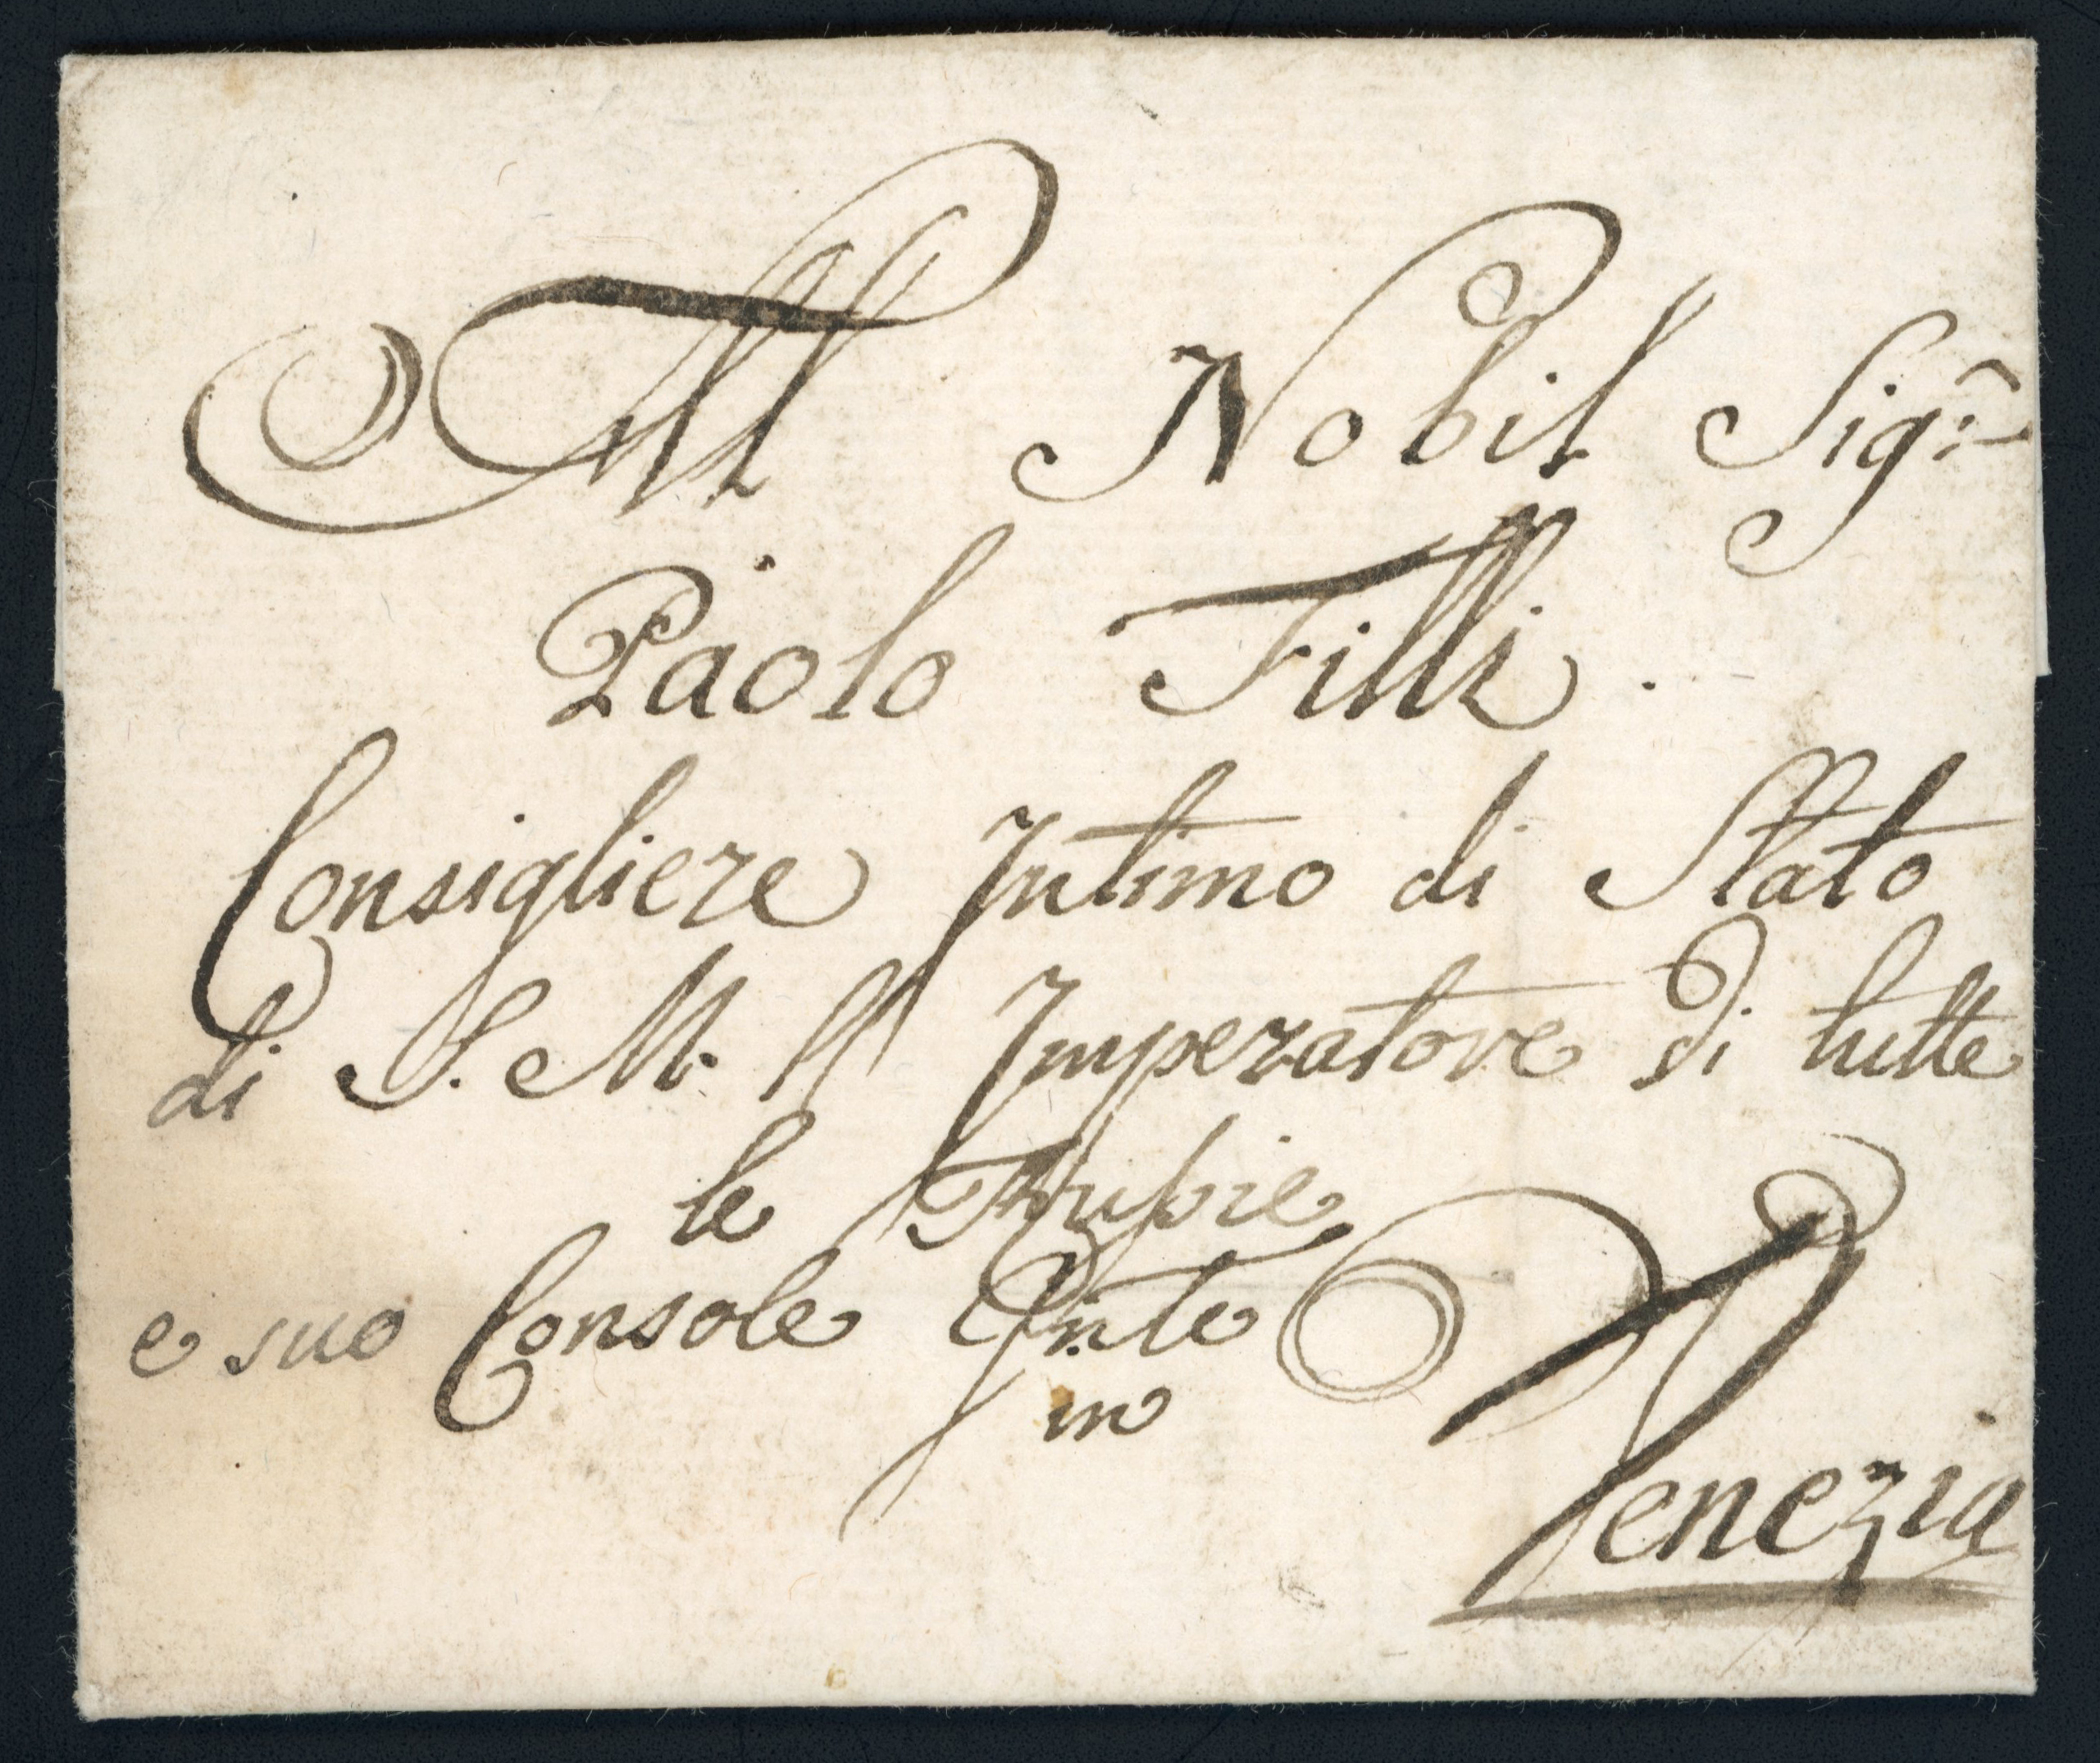 All Nobil Sigr:
Paolo Filli.
Consigliere Intimo di Stato
di S. M. ll' Imperatore di tutte
le Russie
e suo Console Gnte
in
Venezia